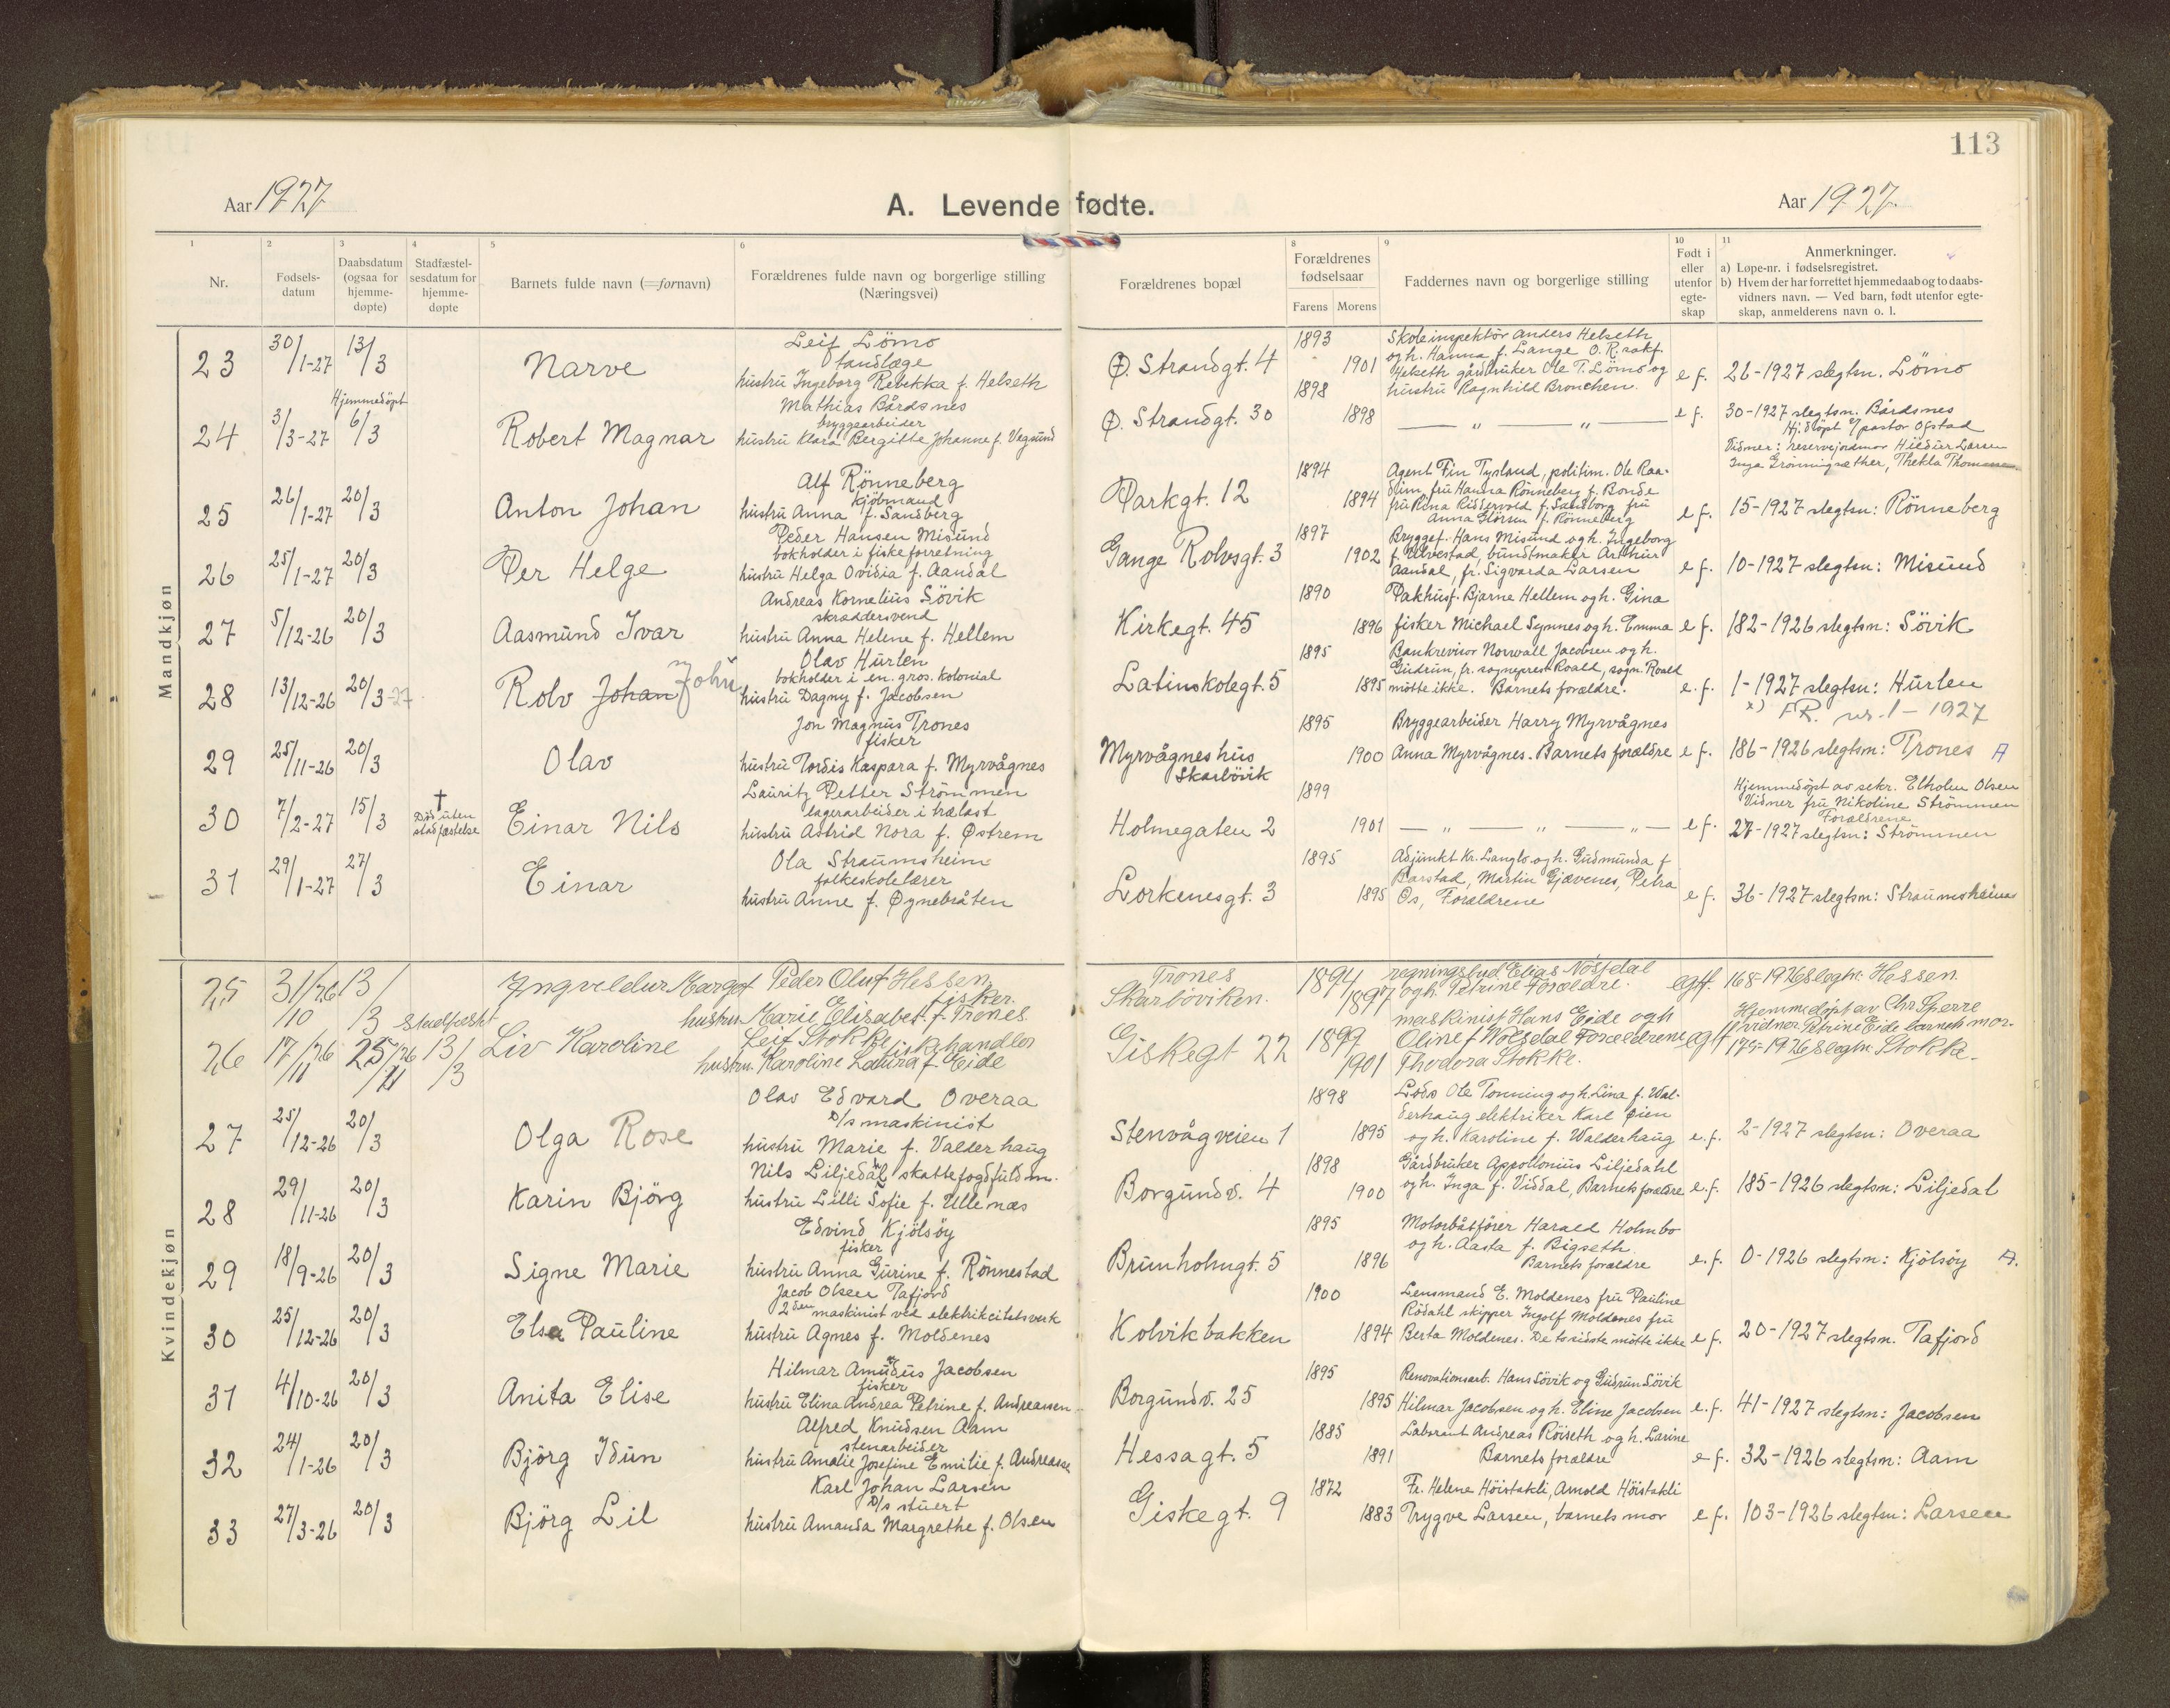 113
Aar 1927
A. Levende fødte.
Aar 1927.
1 2 3 4 5 6 8 9 10 11
Nr.
Fødselsdatum
Daabsdatum (ogsaa for hjemmedøpte)
Stadfæstelsesdatum for hjemmedøpte
Barnets fulde navn (=fornavn)
Forældrenes fulde navn og borgerlige stilling (Næringsvei)
Forældrenes bopæl
Forældrenes fødselsaar
Farens Morens
Faddernes navn og borgerlige stilling
Født i eller utenfor egteskap
Anmerkninger.
a) Løpe-nr. i fødselsregistret.
b) Hvem der har forrettet hjemmedaab og to daabsvidners navn. — Ved barn, født utenfor egteskap, anmelderens navn o. l.
Mandkjøn
23 30/1-27 13/3 Narve
Leif Lömo
tandlæge
hustru Ingeborg Rebekka f. Helseth
Ø. Strandgt. 4 1893 1901
Skoleinspektör Anders Helseth
og h. Hanna f. Lange O.R. sakf.
Helseth gårdbruker Ole T. Lömo og
hustru Ragnhild Bronchen.
e f. 26-1927 slegtsn. Lömo
24 3/3-27 Hjemmedöpt 6/3 Robert Magnar
Mathias Bårdsnes
bryggearbeider
hustru Klara Bergitte Johanne f. Vegsund
Ø. Strandgt. 30 1898 1898
— " — " —
e f. 30-1927 slegtsn. Bårdsnes
Hj. döpt v/ pastor Ofstad
Vidner: reservejordmor Hildur Larsen
Inga Grönningsæther, Thekla Thomsen
25 26/1-27 20/3 Anton Johan
Alf Rönneberg
kjöbmand
hustru Anna f. Sandberg
Parkgt. 12 1894 1894
Agent Fin Tysland, politim. Ole Raadim, fru Hanna Rönneberg f. Bonde
fru Rena Riddervold f. Sandborg fru
Anna Glörsen f. Rönneberg
e f. 15-1927 slegtsn: Rönneberg
26 25/1-27 20/3 Per Helge
Peder Hansen Misund
bokholder i fiskeforretning
hustru Helga Ovidia f. Aandal
Gange Rolvsgt. 3 1897 1902
Bryggef. Hans Misund og h. Ingeborg
f. Ulvestad, bundtmaker Arthur
Aandal, fr. Sigvarda Larsen
e f. 10-1927 slegtsn: Misund
27 5/12-26 20/3 Aasmund Ivar
Andreas Kornelius Sövik
skræddersvend
hustru Anna Helene f. Hellem
Kirkegt. 45 1890 1896
Pakhusf. Bjarne Hellem og h. Gina
fisker Michael Synnes og h. Emma
e f. 182-1926 slegtsn: Sövik
28 13/12-26 20/3-27 Rolv Johan x) John
Olav Hurlen
bokholder i en. gros. kolonial
hustru Dagny f. Jacobsen
Latinskolegt. 5 1895 1895
Bankrevisor Norwall Jacobsen og h.
Gudrun, fr. sogneprest Roald, sogn. Roald
mötte ikke. Barnets forældre.
e. f. 1-1927 slegtsn: Hurlen
x) F.R. nr. 1 - 1927
29 25/11-26 20/3 Olav
Jon Magnus Trones
fisker
hustru Tordis Kaspara f. Myrvågnes
Myrvågneshus
Skarbövik 1895 1900
Bryggearbeider Harry Myrvågnes
Anna Myrvågnes. Barnets forældre
e f. 186-1926 slegtsn: Trones A
30 7/2-27 15/3 † Död uten stadfæstelse Einar Nils
Lauritz Petter Strömmen
lagerarbeider i trælast
hustru Astrid Nora f. Østrem
Holmegaten 2 1899 1901
— " — " — " —
e f. Hjemmedöpt av sekr. Elholm Olsen
Vidner fru Nikoline Strömmen
Forældrene
27-1927 slegtsn: Strömmen
31 29/1-27 27/3 Einar
Ola Straumsheim
folkeskolelærer
hustru Anne f. Øynebråten
Lorkenesgt. 3 1895 1895
Adjunkt Kr. Langlo og h. Gudmunda f
Barstad, Martin Gjævenes, Petra
Os, Forældrene
e f. 36-1927 slegtsn: Straumsheim
Kvindekjøn
25 31/10 26 13/3 Ingveldur Margot
Peder Oluf Hessen
fisker.
hustru Marie Elisabet f. Trones
Trones
Skarböviken. 1894 1897
regningsbud Elias Nösdal
og h. Petrine Forældre.
egtf. 168-1926 slegtn: Hessen.
26 17/11 26 25/11 26 Stadfæstet 13/3 Liv Karoline
Leif Stokke fiskehandler
hustru Karoline Laura f. Eide
Giskegt 22 1899 1901
maskinist Hans Eide og h
Oline f Wolsdal Forældrene
Thodora Stokke.
egtf Hjemmedöpt av Chr Sperre
vidner, Petrine Eide barnets mor.
175-1926 slegtn: Stokke.
27 25/12-26 20/3 Olga Rose
Olav Edvard Overaa
D/s maskinist
hustru Marie f. Valderhaug
Stenvågveien 1 1898 1895
Lods Ole Tonning og h. Lina f. Walderhaug elektriker Karl Øien
og h. Karoline f. Walderhaug
e. f. 2-1927 slegtsn: Overaa
28 29/11-26 20/3 Karin Bjørg
Nils Liljedahl skattefogdfuldm.
hustru Lilli Sofie f. Ullenæs
Borgundv. 4 1898 1900
Gårdbruker Appollonius Liljedahl
og h. Inga f. Viddal, Barnets forældre
e. f. 185-1926 slegtsn: Liljedal
29 18/9-26 20/3 Signe Marie
Edvind Kjölsöy
fisker
hustru Anna Gurine f. Rönnestad
Brunholmgt. 5 1895 1896
Motorbåtförer Harald Holmbo
og h. Aasta f. Bigseth.
Barnets forældre
e. f. 0-1926 slegtsn: Kjölsöy A.
30 25/12-26 20/3 Elsa Pauline
Jacob Olsen Tafjord
2den maskinist ved elektrikcitetsverk
hustru Agnes f. Moldenes
Kolvikbakken 1900 1894
Lensmand E. Moldenes fru Pauline
Rödahl skipper Ingolf Moldenes fru
Berta Moldenes. De to sidste mötte ikke
e f. 20-1927 slegtsn. Tafjord
31 4/10-26 20/3 Anita Elise
Hilmar Amundus Jacobsen
fisker
hustru Elina Andrea Petrine f. Andreassen
Borgundv. 25 1895 1895
Renovationsarb. Hans Sövik og Gudrun Sövik
Hilmar Jacobsen og h. Eline Jacobsen
e. f. 41-1927 slegtsn: Jacobsen
32 24/1-26 20/3 Björg Idun
Alfred Knudsen Aam
stenarbeider
hustru Amalie Josefine Emilie f. Andreasse
Hessagt. 5 1885 1891
Laborant Andreas Röiseth og h. Larine
Barnets forældre
e f. 32-1926 slegtsn: Aam
33 27/3-26 20/3 Björg Lil
Karl Johan Larsen
D/s stuert
hustru Amanda Margrethe f. Olsen
Giskegt. 9 1872 1883
Fr. Helene Höistakli, Arnold Höistakli
Trygve Larsen, barnets mor
e f. 103-1926 slegtsn: Larsen